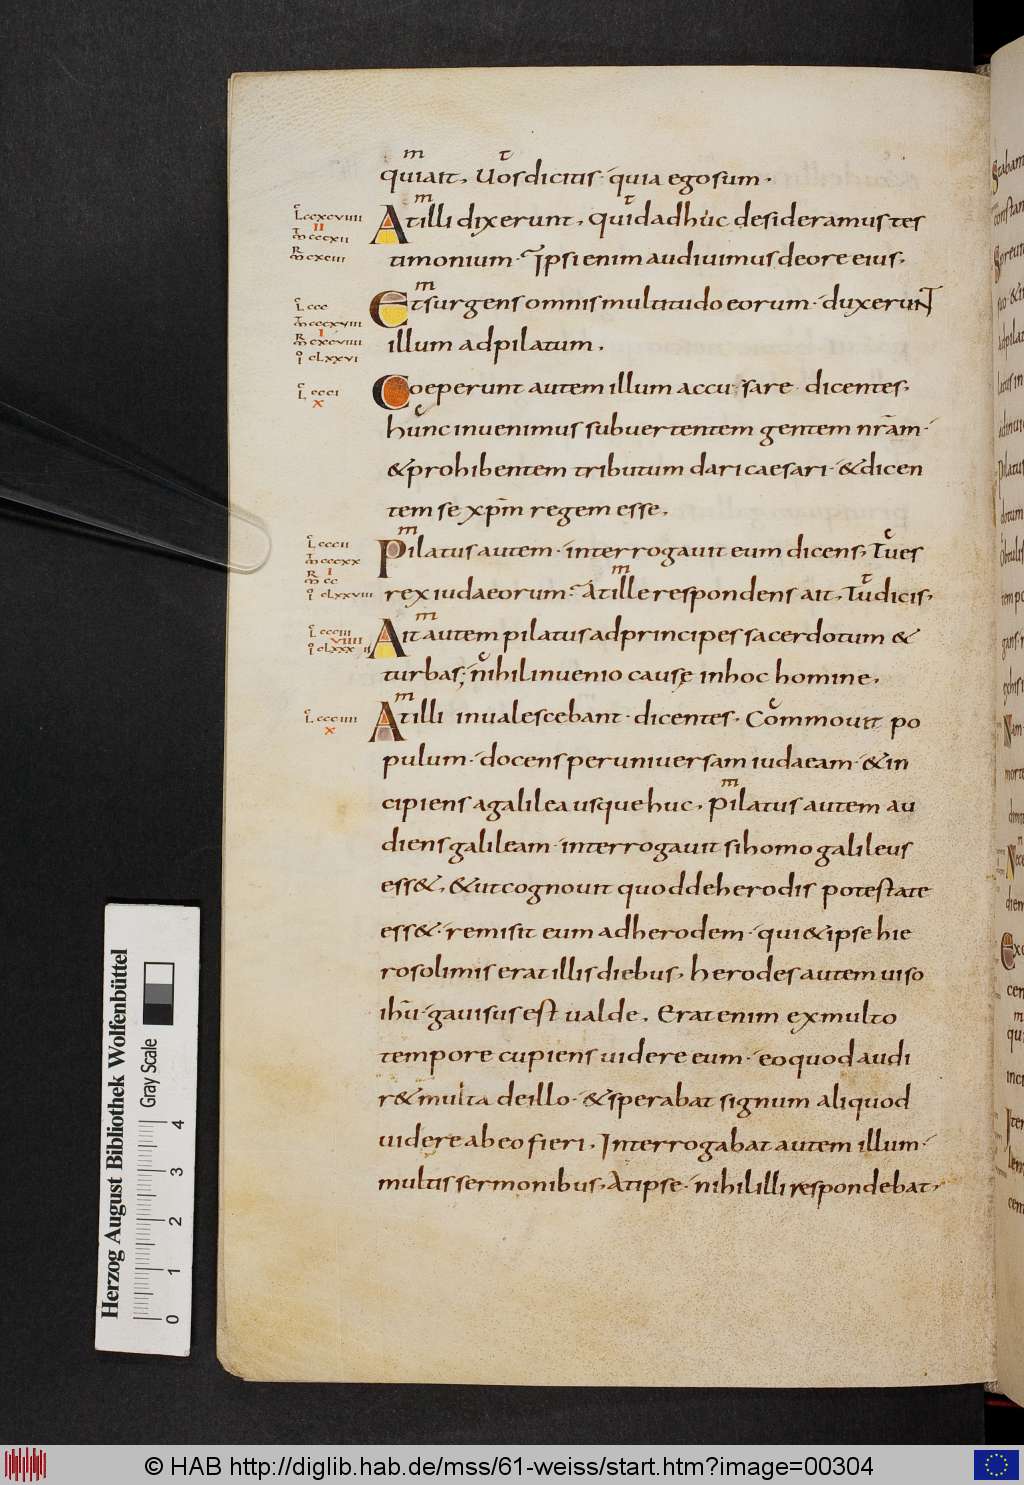 quia ait, Uos dicitis· quia ego sum·
At illi dixerunt, quid adhuc desideramus tes
timonium· Ipsi enim audiuimus de ore eius,
Et surgens omnis multitudo eorum· duxerunt
illum ad pilatum,
Coeperunt autem illum accusare· dicentes,
hunc inuenimus subuertentem gentem nr̄am·
& prohibentem tributum dari caesari· & dicen
tem se xp̄m regem esse,
Pilatus autem· interrogauit eum dicens, Tu es
rex iudaeorum· At ille respondens ait, Tu dicis,
Ait autem pilatus ad principes sacerdotum &
turbas; nihil inuenio causę in hoc homine,
At illi inualescebant· dicentes, Commouit po
pulum· docens per uniuersam iudaeam· & in
cipiens a galilea usque huc, Pilatus autem au
diens galileam· interrogauit si homo galileus
ess&, & ut cognouit quod de herodis potestate
ess&· remisit eum ad herodem· qui & ipse hie
rosolimis erat illis diebus, herodes autem uiso
ihū· gauisus est ualde, Erat enim ex multo
tempore cupiens uidere eum· eo quod audi
r& multa de illo· & sperabat signum aliquod
uidere ab eo fieri, Interrogabat autem illum·
multis sermonibus, At ipse· nihil illi respondebat,
Herzog August Bibliothek Wolfenbüttel
Gray Scale
0 1 2 3 4
© HAB http://diglib.hab.de/mss/61-weiss/start.htm?image=00304